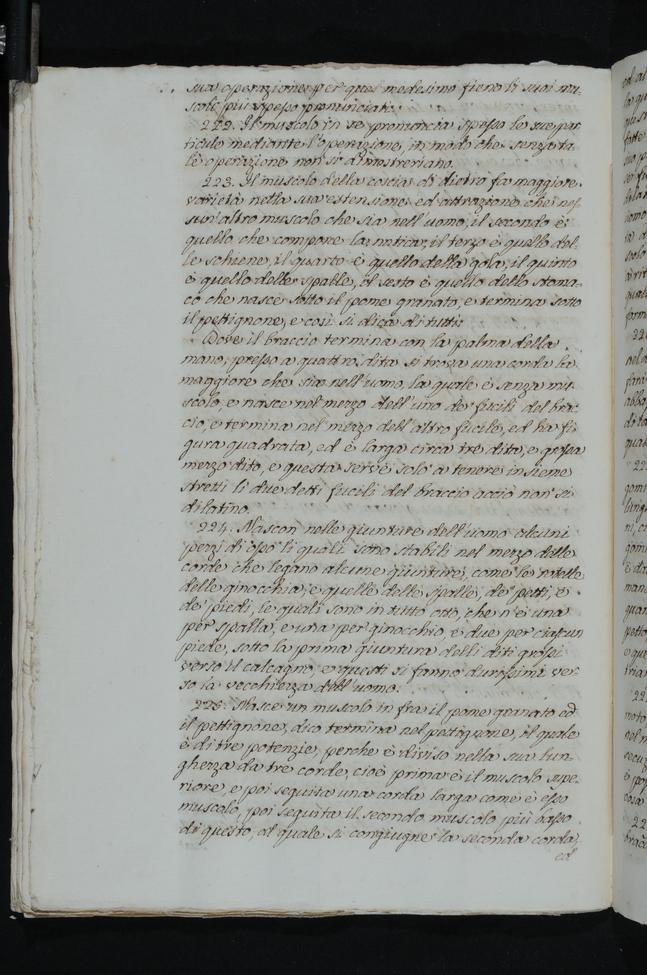 sua operazione, per quel medesimo fieno li suoi mu-
scoli più spesso pronunciati.
222. Il muscolo in se pronuncia spesso le sue par-
ticule mediante l'operazione, in modo che senza ta-
le operazione non si dimostreriano.
223. Il muscolo della coscia di dietro fa maggiore
varietà nella sua estensione ed attrazione, che nes-
sun'altro muscolo che sia nell'uomo, il secondo è
quello che compone la natica, il terzo è quello del-
le schiene, il quarto è quello della gola, il quinto
è quello delle spalle, il sesto è quello dello stoma-
co che nasce sotto il pome granato, e termina sotto
il pettignone, e così si dica di tutti.
Dove il braccio termina con la palma della
mano, presso a quattro dita si trova una corda la
maggiore che sia nell'uomo, la quale è senza mu-
scolo, e nasce nel mezzo dell'uno de' fucili del brac-
cio, e termina nel mezzo dell'altro fucile, ed ha fi-
gura quadrata, ed è larga circa tre dita, e grossa
mezzo dito, e questa serve solo a tenere insieme
stretti li due detti fucili del braccio acciò non si
dilatino.
224. Nascon nelle giunture dell'uomo alcuni
pezzi di osso li quali sono stabili nel mezzo delle
corde che legano alcune giunture, come le rotelle
delle ginocchia, e quelle delle spalle, de' petti, e
de' piedi, le quali sono in tutto otto, che n'è una
per spalla, e una per ginocchio, e due per ciascun
piede, sotto la prima giuntura delli diti grossi
verso il calcagno, e questi si fanno durissimi ver-
so la vecchiezza dell'uomo.
225. Nasce un muscolo in fra il pome granato ed
il pettignone, dico termina nel pettignone, il quale
è di tre potenzie, perchè è diviso nella sua lun-
ghezza da tre corde, cioè prima è il muscolo supe-
riore, e poi seguita una corda larga come è esso
muscolo, poi seguita il secondo muscolo più basso
di questo, al quale si congiugne la seconda corda,
ed